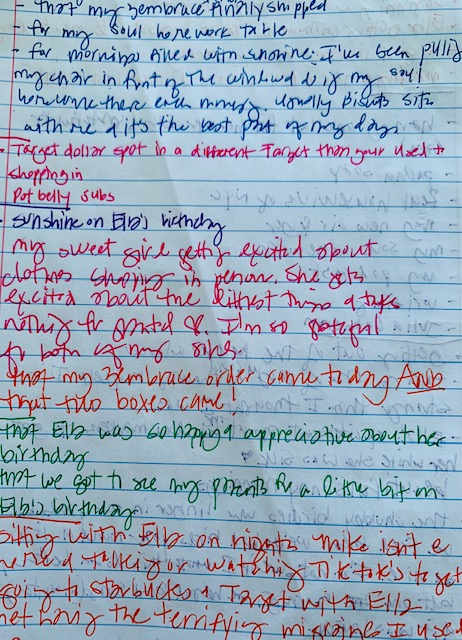 - that my zembrace finally shipped
- for my soul homework table
- for mornings filled with sunshine. I've been pulling
my chair in front of the window do my soul
homework there each morning, usually Biscuits sits
with me & it's the best part of my days
- Target dollar spot in a different Target than your used to
shopping in
Potbelly subs
- sunshine on Ella's birthday
my sweet girl getting excited about
clothes shopping in person. She gets
excited about the littlest things & takes
nothing for granted. I'm so grateful
for both of my girls.
that my zembrace order came today AND
that two boxes came!
that Ella was so happy & appreciative about her
birthday
that we got to see my parents for a little bit on
Ella's birthday
sitting with Ella on nights Mike isn't
talking or watching TikTok's together
going to starbucks & Target with Ella
not having the terrifying migraine I used